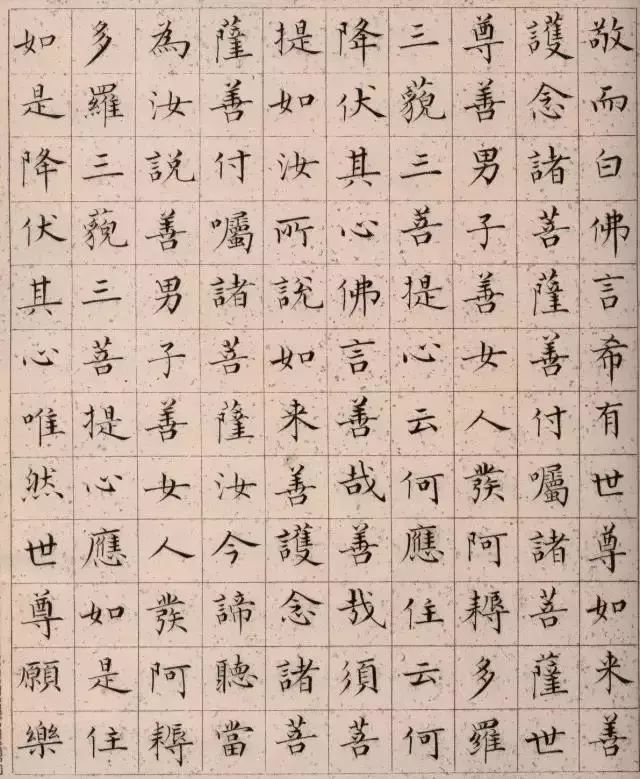 敬而白佛言希有世尊如来善
護念諸菩薩善付囑諸菩薩世
尊善男子善女人發阿耨多羅
三藐三菩提心云何應住云何
降伏其心佛言善哉善哉須菩
提如汝所說如来善護念諸菩
薩善付囑諸菩薩汝今諦聽當
為汝說善男子善女人發阿耨
多羅三藐三菩提心應如是住
如是降伏其心唯然世尊願樂